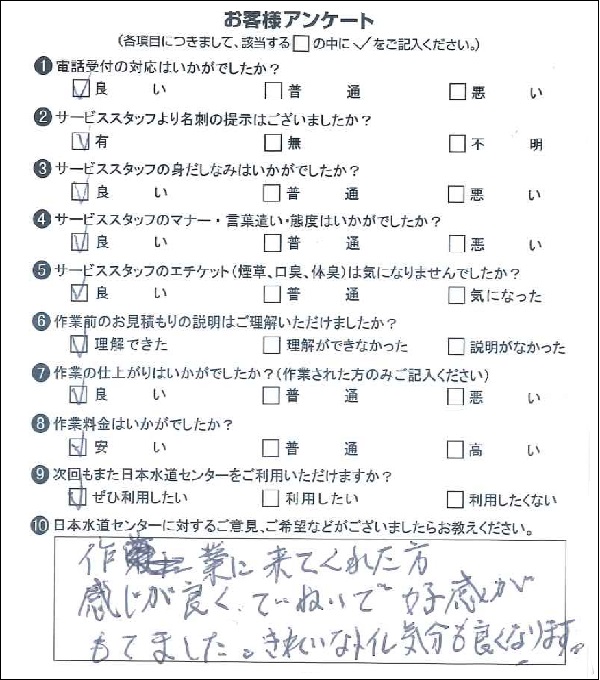 お客様アンケート
(各項目につきまして、該当する□の中に✓をご記入ください。)
❶ 電話受付の対応はいかがでしたか?
☑ 良い □ 普通 □ 悪い
❷ サービススタッフより名刺の提示はございましたか?
☑ 有 □ 無 □ 不明
❸ サービススタッフの身だしなみはいかがでしたか?
☑ 良い □ 普通 □ 悪い
❹ サービススタッフのマナー・言葉遣い・態度はいかがでしたか?
☑ 良い □ 普通 □ 悪い
❺ サービススタッフのエチケット(煙草、口臭、体臭)は気になりませんでしたか?
☑ 良い □ 普通 □ 気になった
❻ 作業前のお見積もりの説明はご理解いただけましたか?
☑ 理解できた □ 理解ができなかった □ 説明がなかった
❼ 作業の仕上がりはいかがでしたか?(作業された方のみご記入ください)
☑ 良い □ 普通 □ 悪い
❽ 作業料金はいかがでしたか?
☑ 安い □ 普通 □ 高い
❾ 次回もまた日本水道センターをご利用いただけますか?
☑ ぜひ利用したい □ 利用したい □ 利用したくない
❿ 日本水道センターに対するご意見、ご希望などがございましたらお教えください。
作業に来てくれた方
感じが良く、ていねいで好感が
もてました。きれいなトイレ気分も良くなります。